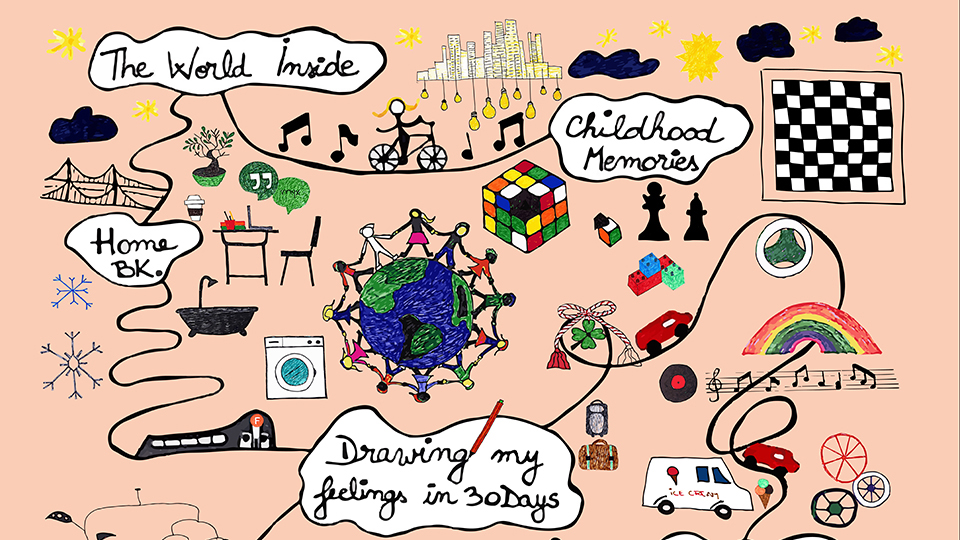 The World Inside
Childhood
Memories
Home
BK.
F
Drawing my
feelings in 30Days
ICE CREAM